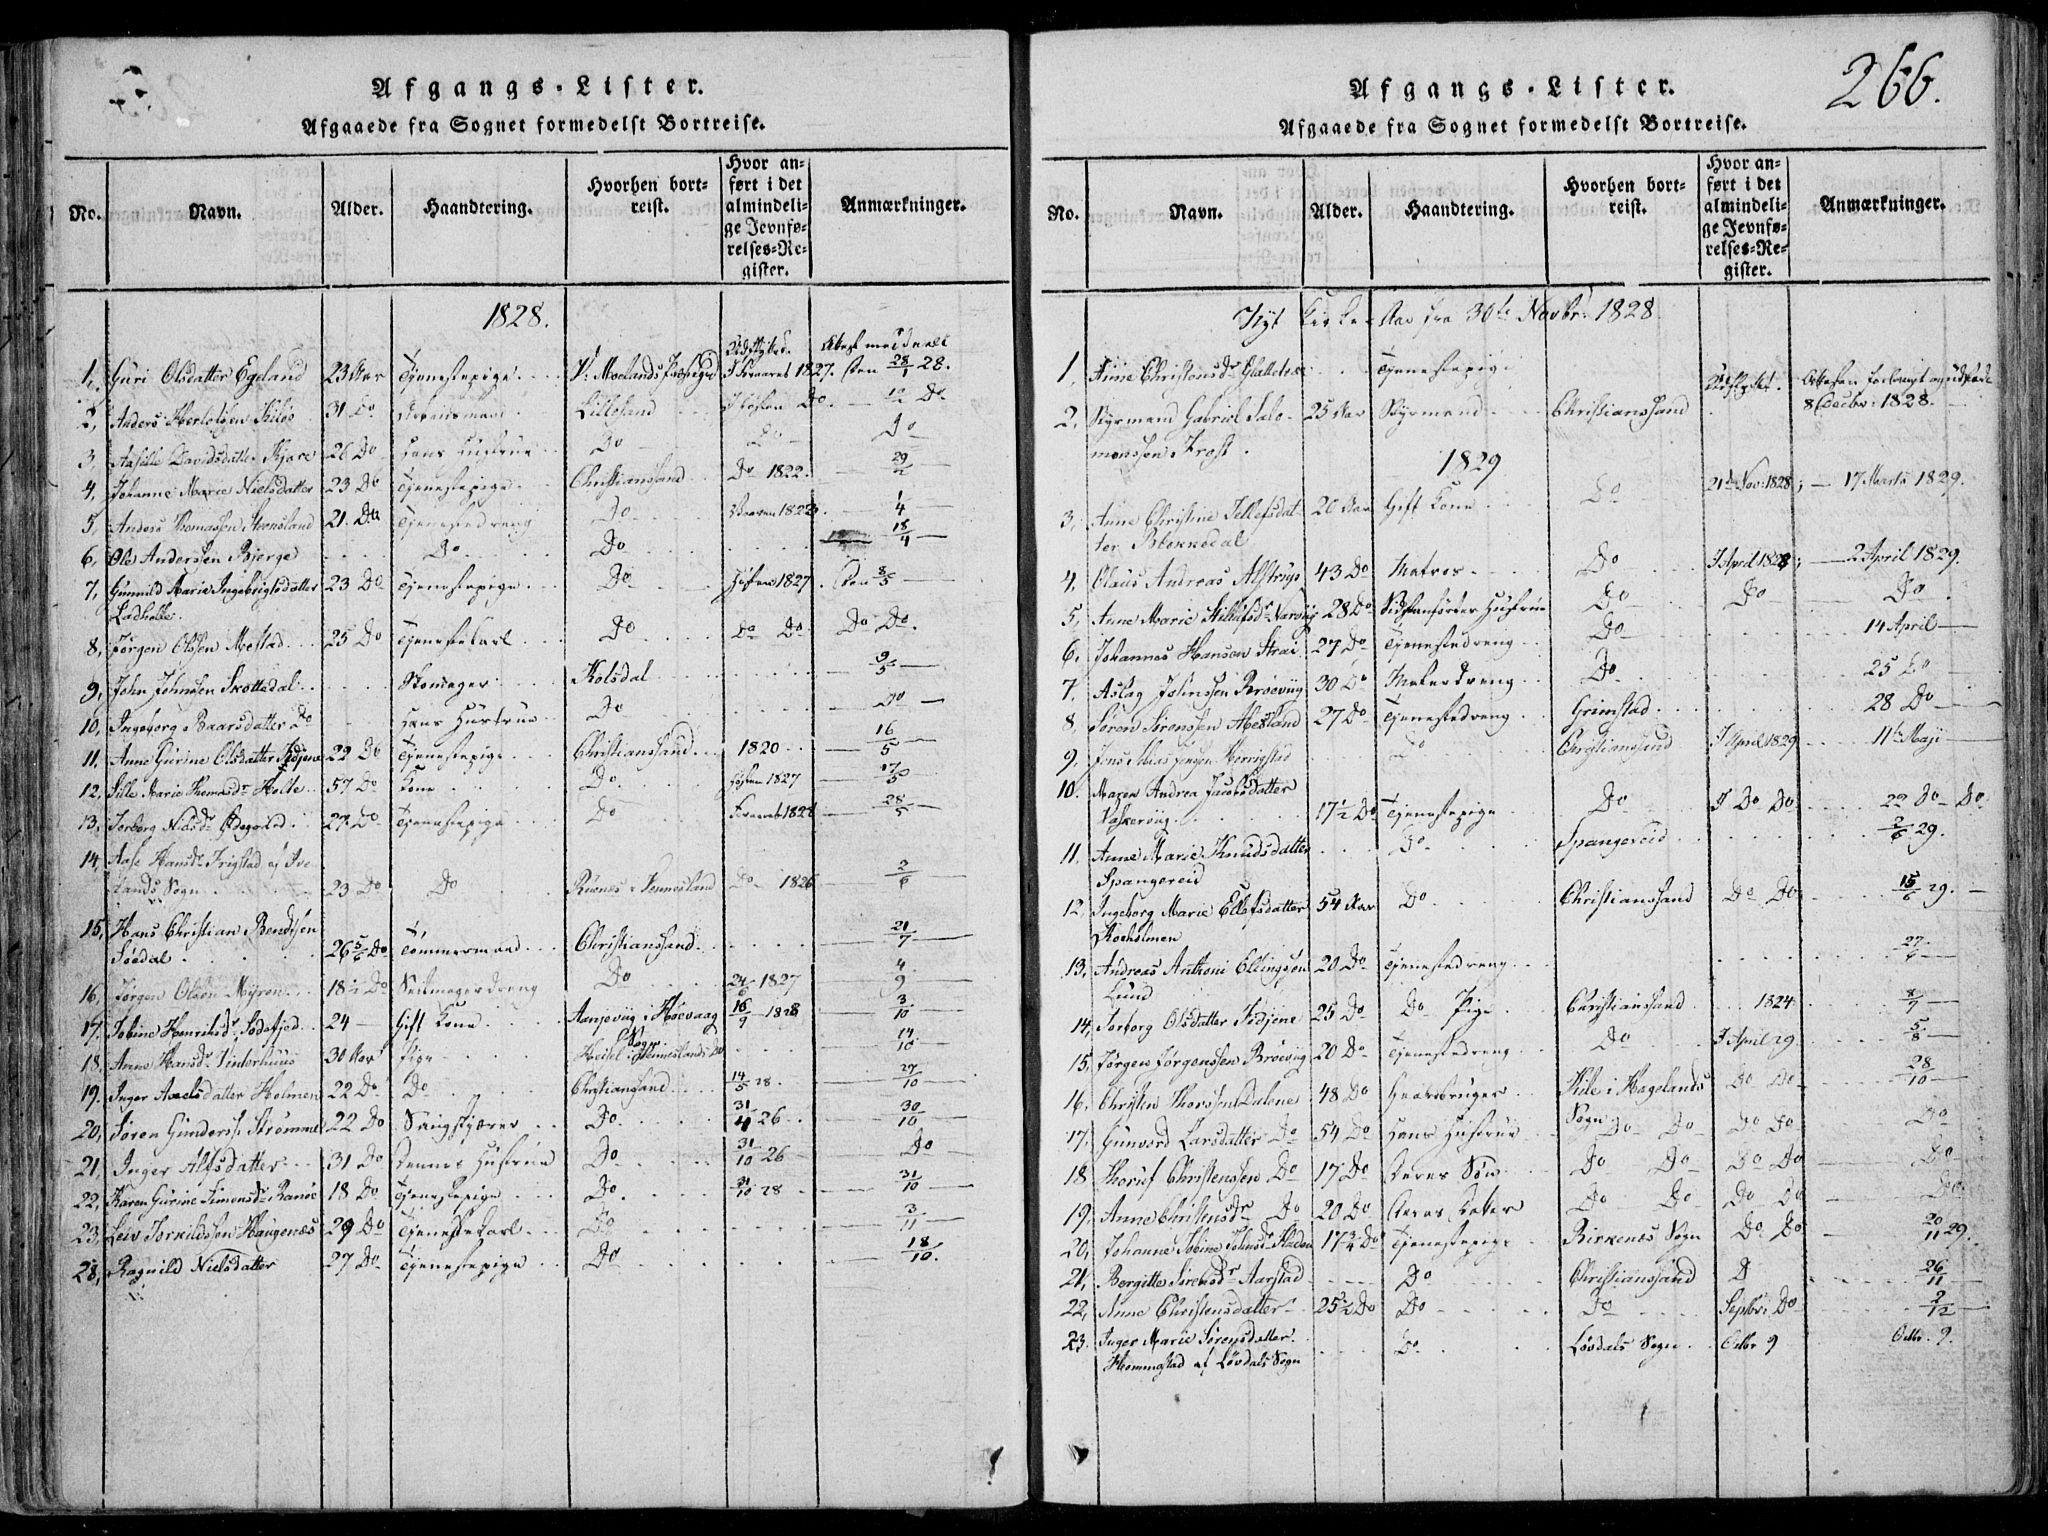 Afgangs-Lister.
Afgaaede fra Sognet formedelst Bortreise.
No. Navn. Alder. Haandtering. Hvorhen bortreist. Hvor anført i det almindelige Jevnførelses-Register. Anmærkninger.
1828.
1, Guri Olsdatter Egeland 23 Aar Tjenestepige. V: Moelands Præstegield I Foraaret 1827. den 28/1 28.
2, Anders Lillesand I Høsten Do. 12/2 Do
3, Aaselle Davidsdatter Kjære 26 Do hans Hustrue Do Do Do
4, Johanne Marie Nielsdatter 23 Do Tjenestepige. Christianssand Do 1822. 29/2
5, Anders Thomassen Stensland 21. Do Tjenestedreng Do 1/4
6, Ole Andersen Bjerge Do Do 18/4
7, Gunnild Marie Ingebrigtsdatter 23 Do Tjenestepige Do Høsten 1827. Den 8/5
Ladhølle.
8, Jørgen Olsen Mestad 25 Do Tjenestekarl Do Do Do Do Do.
9, John Johnsen Skottedal Skomager Kolsdal 9/5
10, Ingeborg Baarsdatter Do hans Hustrue Do Do
11, Anne Gurine Olsdatter Kidjene 22 Do Tjenestepige Christianssand 1820 16/5
12, Sille Marie Thomasdr Holte 57 Do Kone Do. Høsten 1827 17/5
13, Torborg Nielsdr Ødegaard Do Tjenestepige Do Foraaret 1828 28/5
14, Aase Hansdr Frigstad af Ivelands Sogn 23 Do Do Vennesland Do 1826 2/6
15, Hans Christian Bendtsen
Søedal 26 5/6 Do Tømmermand Christianssand. 21/7
16, Jørgen Olsen Myren 18 1/2 Do Seilmagerdreng Do 24/6 1827 4/9
17, Tobine Henrichsdr Sodefjed 24 Gift Kone Aanjevig i Høevaag Sogn. 16/9 1828 3/10
18. Anne Hansdr Vinterhuus 30 Aar Pige Heisel i Vennesland Do 14/10
19. Inger Axelsdatter Holmen 22 Do Do Christianssand 14/5 28 27/10
20, Søren Gundersn Strømme 22 Do Saugskjærer Do. 31/4 26 30/10
21, Inger Alfsdatter 31 Do Dennes Hustrue Do 31/10 26 Do
22, Karen Gurine Simonsdr Randøe 18 Do Tjenestepige Do. 31/10 28 31/10
23, Leiv Torkildssen Haugenæs 29 Do Tjenestekarl Do 3/11
28, Ragnild Nielsdatter 27 Do Tjenestepige Do 18/10.
266.
Afgangs-Lister.
Afgaaede fra Sognet formedelst Bortreise.
No. Navn. Alder. Haandtering. Hvorhen bortreist. Hvor anført i det almindelige Jevnførelses-Register. Anmærkninger.
Nyt Kirke-Aar fra 30te Novbr: 1828.
1, Anne Christensdr Slattelie Tjenestepige
2, Styrmand Gabriel Salomonssen Frost. 25 Aar Styrmand Christianssand 8 Decbr: 1828.
1829
3, Anne Christine Tellefsdatter Blekkedal 20 Aar Gift Kone Do 21de Nov: 1828; 17 Marts 1829.
4, Claus Andreas Alstrup 43 Do Matros Do I April 1828; 2 April 1829.
5, Anne Marie 28 Do Sidstanførtes Hustrue Do Do Do
6, Johannes Hansen Strai 27 Do Tjenestedreng Do 14 April
7, Aslag Johnssen Brøevig 30 Do Malerdreng Do 25 Do
8, Søren Sørensen Mesland 27 Do Tjenestedreng Grimstad 28 Do
9, Jens Jensen Herrigstad Do Christianssand I April 1829 11te Maji
10. Maren Andrea Jacobsdatter
Vaskevig 17 1/2 Do Tjenestepige Do I Do Do 22 Do Do
11. Anne Marie Knudsdatter Do Spangereid 2/6 29.
Spangereid
12, Ingeborg Marie Ellefsdatter 54 Aar Do Christianssand Do Do 15/6 29.
Kocholmen
13, Andreas Anthoni Ellingsen 20 Do Tjenestedreng 27/6
Lund
14, Torborg Olsdatter Kidjene 25 Do Do Pige Christianssand 1824
15, Jørgen Jørgenssen Brøevig 20 Do Tjenestedreng Do I April 29 5/8
16, Christen Thorssen Dalene 48 Do Gaardbruger Kile i Hagelands Sogn Do Do 28/10
17. Gunvord Larsdatter Do 54 Do Hans Hustrue Do Do Do Do Do
18 Thoruf Christensen Do 17 Do Deres Søn Do Do Do Do Do
19, Anne Christensdr Do 20 Do Deres Datter Do Do Do Do Do
20, Johanne Tobine Johnsdr 17 3/4 Do Tjenestepige Birkenes Sogn Do Do 20/11 29.
21, Bergitte Aarstad Do Christianssand D 26/11
22, Anne Christensdatter 25 1/2 Do Do Do Septbr: Do 2/12
23. Inger Marie Sørensdatter Do Løvdals Sogn Octbr 9 Octbr. 9.
Hemmestad af Løvdals Sogn